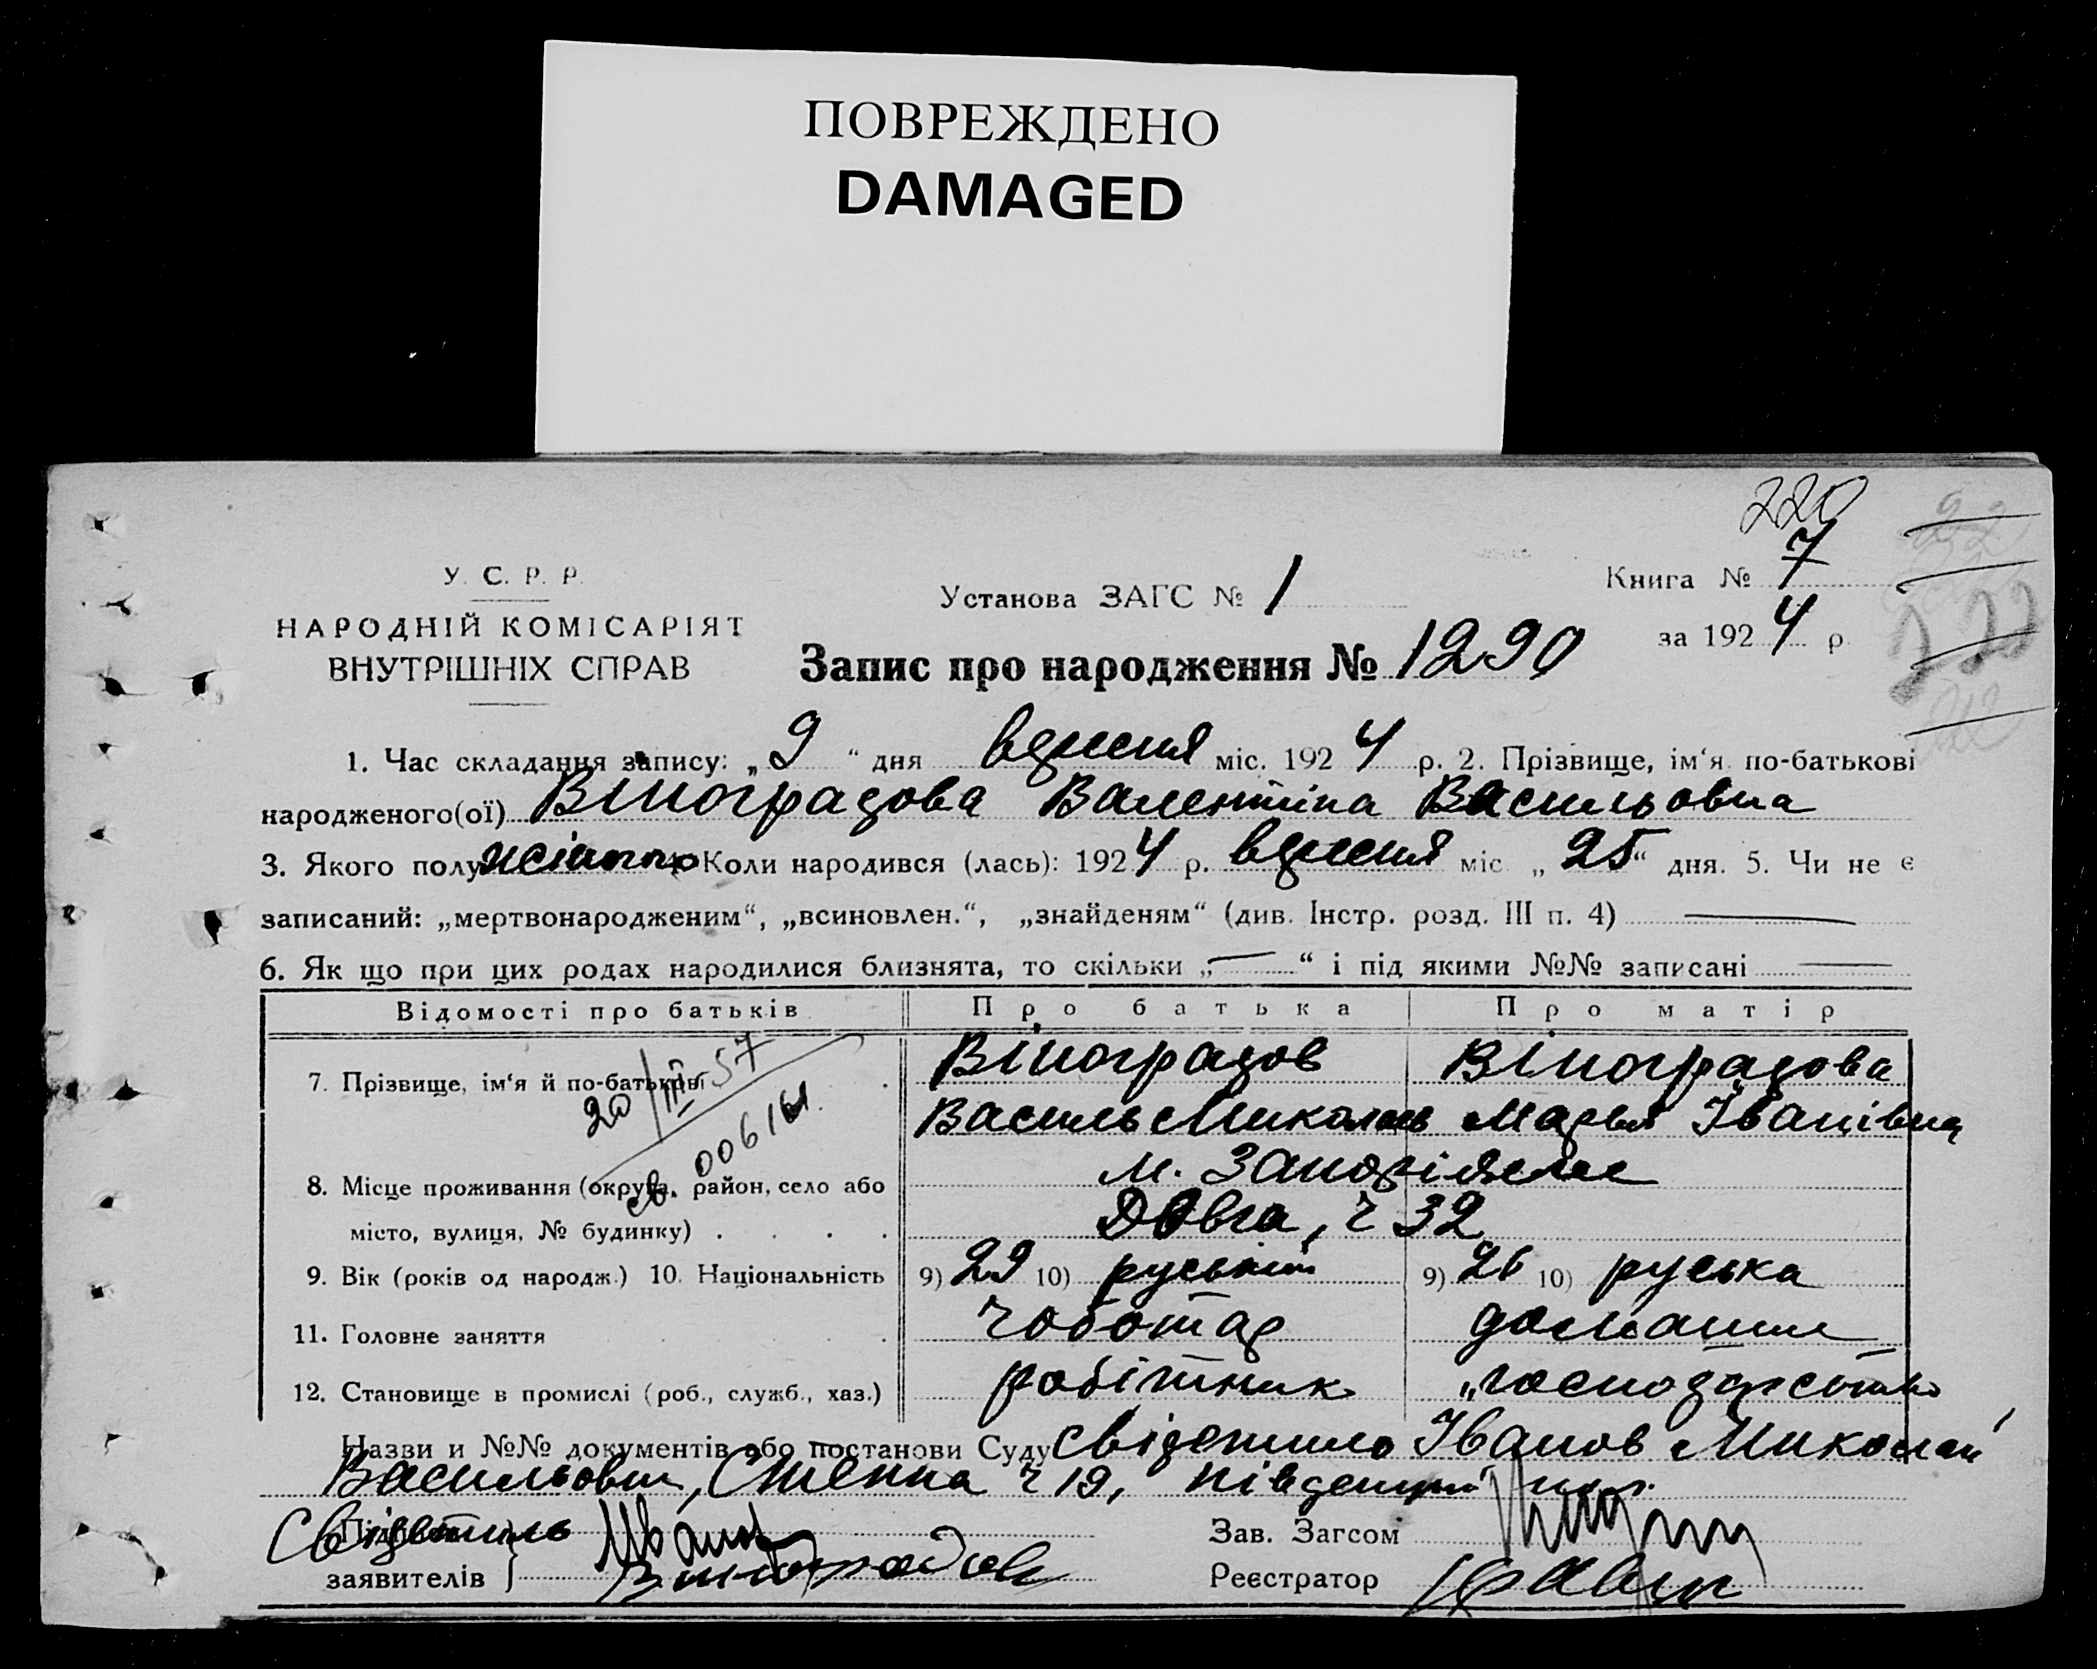 ПОВРЕЖДЕНО
DAMAGED
220
У. С. Р. Р.
НАРОДНІЙ КОМІСАРІЯТ
ВНУТРІШНІХ СПРАВ
Установа ЗАГС № 1
Книга № 7
за 1924 р.
Запис про народження № 1290
1. Час складання запису: „9“ дня вересня міс. 1924 р. 2. Прізвище, ім‘я по-батькові
народженого(ої) Віноградова Валентіна Васильовна
3. Якого полу жіночо 4. Коли народився (лась): 1924 р. вересня міс. „25“ дня. 5. Чи не є
записаний: „мертвонародженим“, „всиновлен.“, „знайденям“ (див. Інстр. розд. III п. 4)
6. Як що при цих родах народилися близнята, то скільки „—“ і під якими №№ записані —
Відомості про батьків Про батька Про матір
7. Прізвище, ім‘я й по-батькові Віноградов Віноградова
Василь Миколаїв Марья Іванівна
20/III-57
св. 006161
8. Місце проживання (округа, район, село або м. Запоріжже
місто, вулиця, № будинку) Довга, ч 32
9. Вік (років од народж.) 10. Національність 9) 29 10) руський 9) 26 10) руська
11. Головне заняття чоботар домашнє
12. Становище в промислі (роб., служб., хаз.) робітник „господарство
Назви и №№ документів або постанови Суду свідетило Іванов Миколай
Васильович, Стенна ч 19, Південний пос.
Свідетиль Іванов
заявителів Виноградов
Зав. Загсом
Реєстратор